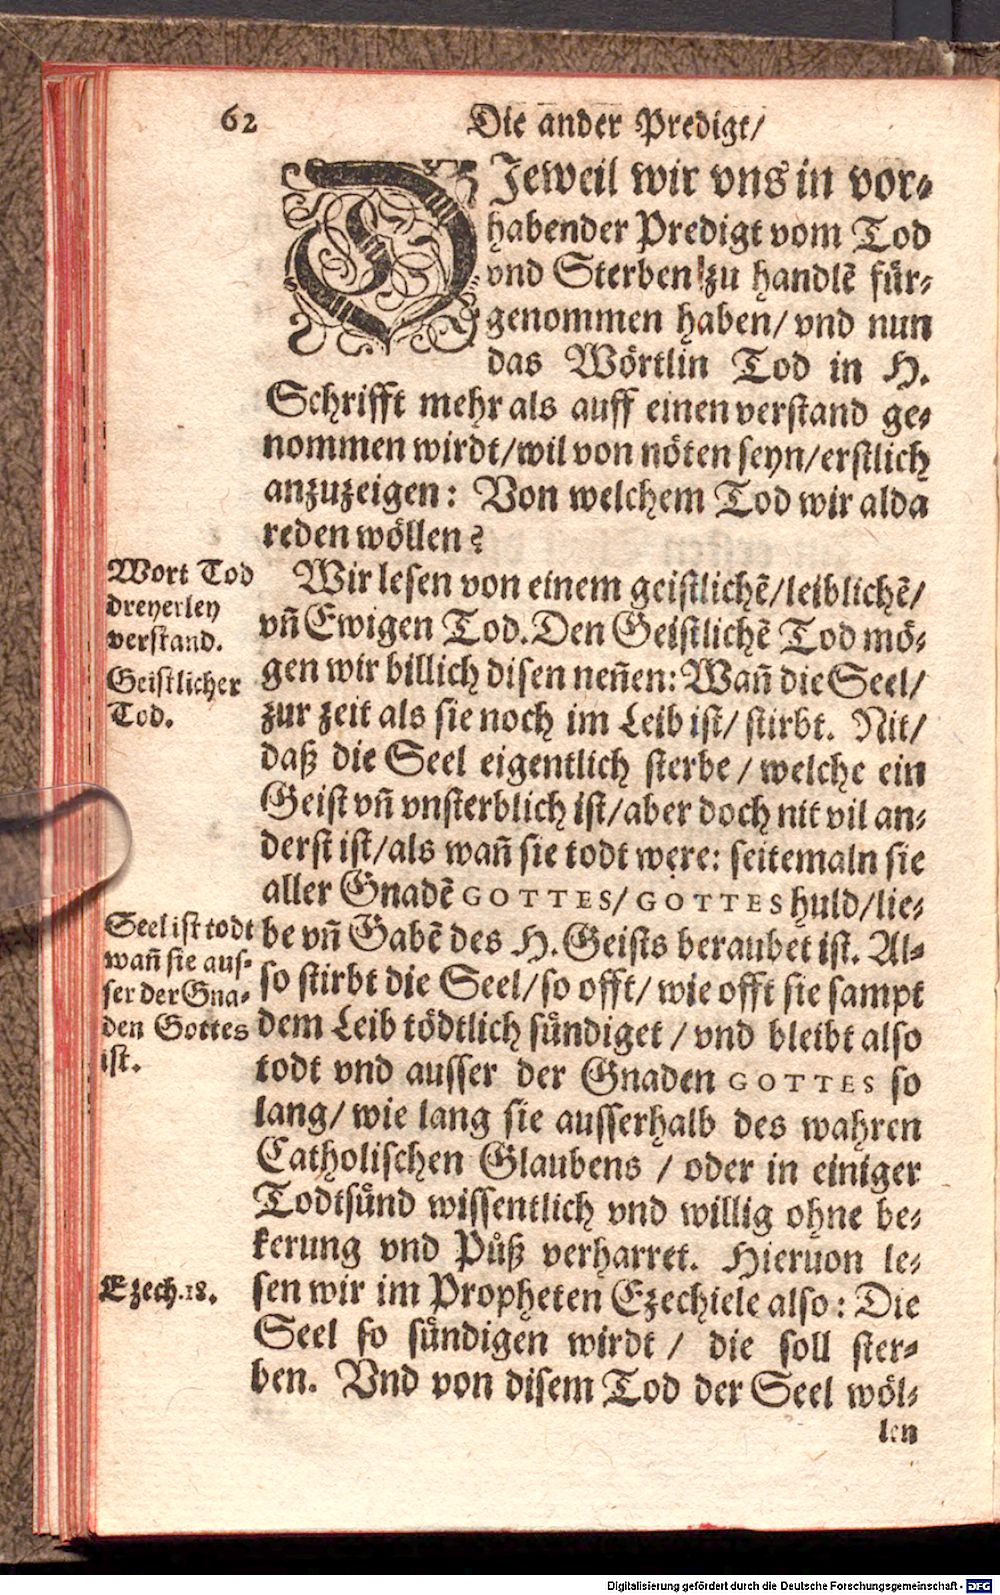 62 Die ander Predigt/
DJeweil wir vns in vor⸗
habender Predigt vom Tod
vnd Sterben zu handlẽ für⸗
genommen haben/ vnd nun
das Wörtlin Tod in H.
Schrifft mehr als auff einen verstand ge⸗
nommen wirdt/wil von nöten seyn/erstlich
anzuzeigen: Von welchem Tod wir alda
reden wöllen?
Wort Tod
dreyerley
verstand.
Geistlicher
Tod.
Wir lesen von einem geistlichẽ/leiblichẽ/
vñ Ewigen Tod. Den Geistlichẽ Tod mö⸗
gen wir billich disen neñen: Wañ die Seel/
zur zeit als sie noch im Leib ist/ stirbt. Nit/
daß die Seel eigentlich sterbe/ welche ein
Geist vñ vnsterblich ist/aber doch nit vil an⸗
derst ist/als wañ sie todt were: seitemaln sie
aller Gnadẽ GOTTES/ GOTTES huld/lie⸗
be vñ Gabẽ des H. Geists beraubet ist. Al⸗
so stirbt die Seel/so offt/ wie offt sie sampt
dem Leib tödtlich sündiget/ vnd bleibt also
todt vnd ausser der Gnaden GOTTES so
lang/ wie lang sie ausserhalb des wahren
Catholischen Glaubens/ oder in einiger
Todtsünd wissentlich vnd willig ohne be⸗
kerung vnd Půß verharret. Hieruon le⸗
sen wir im Propheten Ezechiele also: Die
Seel so sündigen wirdt/ die soll ster⸗
ben. Vnd von disem Tod der Seel wöl⸗
len
Seel ist todt
wañ sie aus⸗
ser der Gna⸗
den Gottes
ist.
Ezech.18.
Digitalisierung gefördert durch die Deutsche Forschungsgemeinschaft - DFG